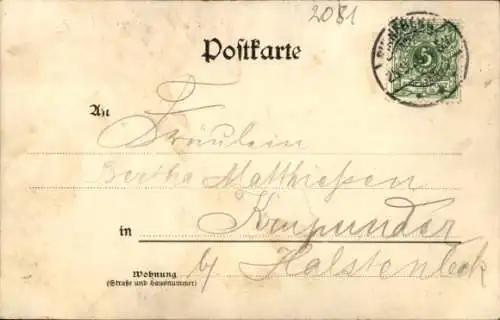 2081
Postkarte
5
An
Fräulein
Bertha Matthießen
in Krupunder
by Halstenbeck
Wohnung
(Straße und Hausnummer)